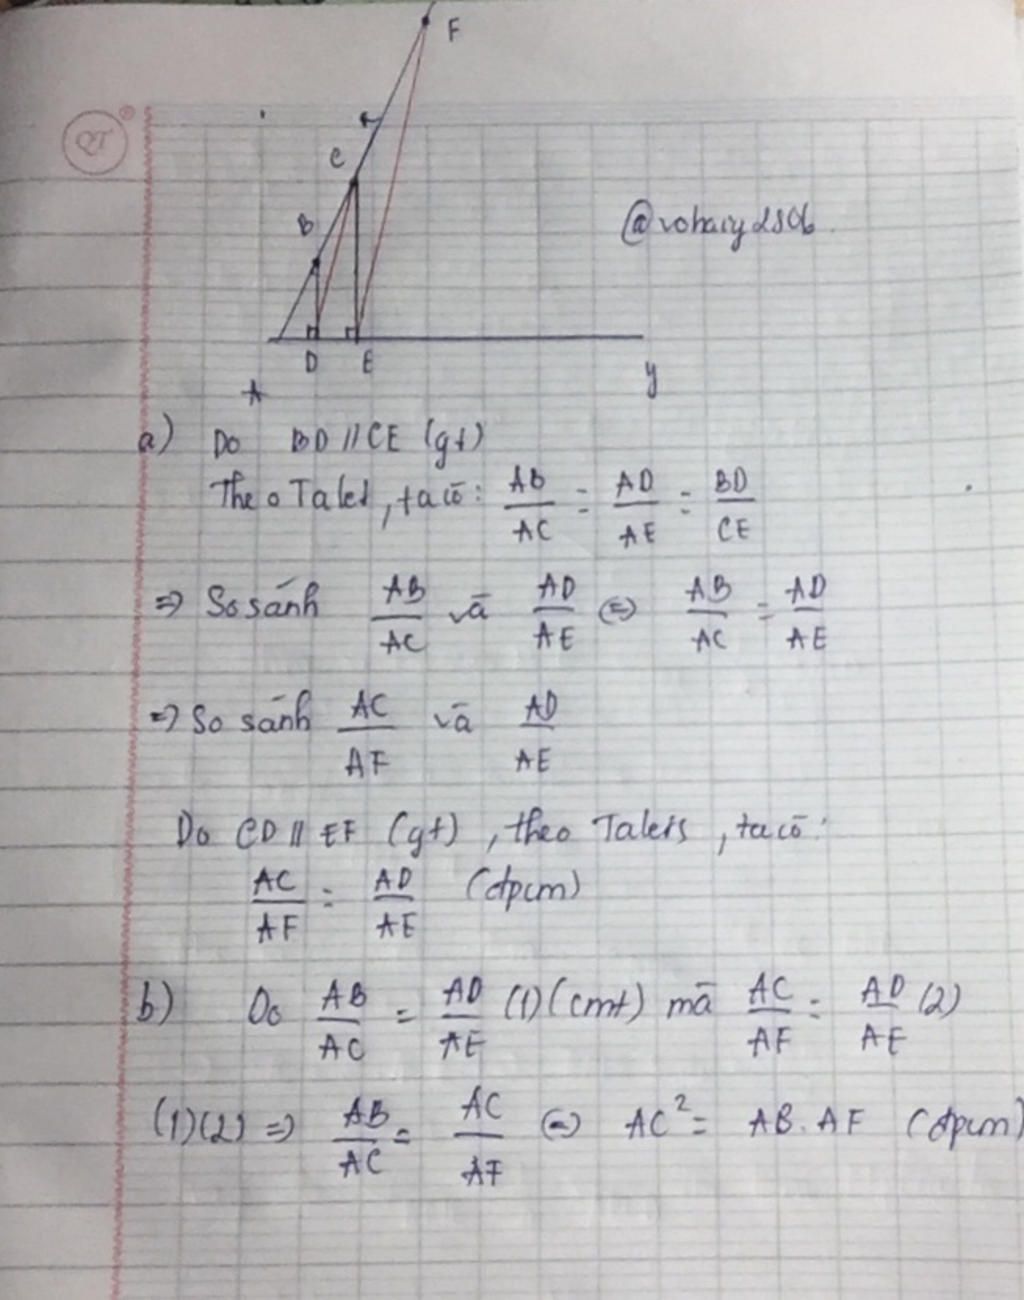 QT
F
x
C
B
@vohaiy2806
D E
A
y
a) Do BD // CE (gt)
Theo Talet, ta có: AB/AC = AD/AE = BD/CE
=> So sánh AB/AC và AD/AE <=> AB/AC = AD/AE
=> So sánh AC/AF và AD/AE
Do CD // EF (gt), theo Talets, ta có:
AC/AF = AD/AE (đpcm)
b) Do AB/AC = AD/AE (1) (cmt) mà AC/AF = AD/AE (2)
(1)(2) => AB/AC = AC/AF <=> AC² = AB.AF (đpcm)